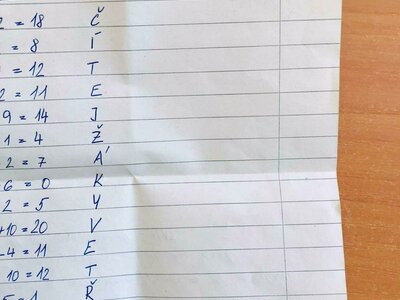 2 = 18 Č
= 8 Í
= 12 T
2 = 11 E
9 = 14 J
1 = 4 Ž
2 = 7 Á
6 = 0 K
2 = 5 Y
+10 = 20 V
-4 = 11 E
10 = 12 T
5 = 1 Ř